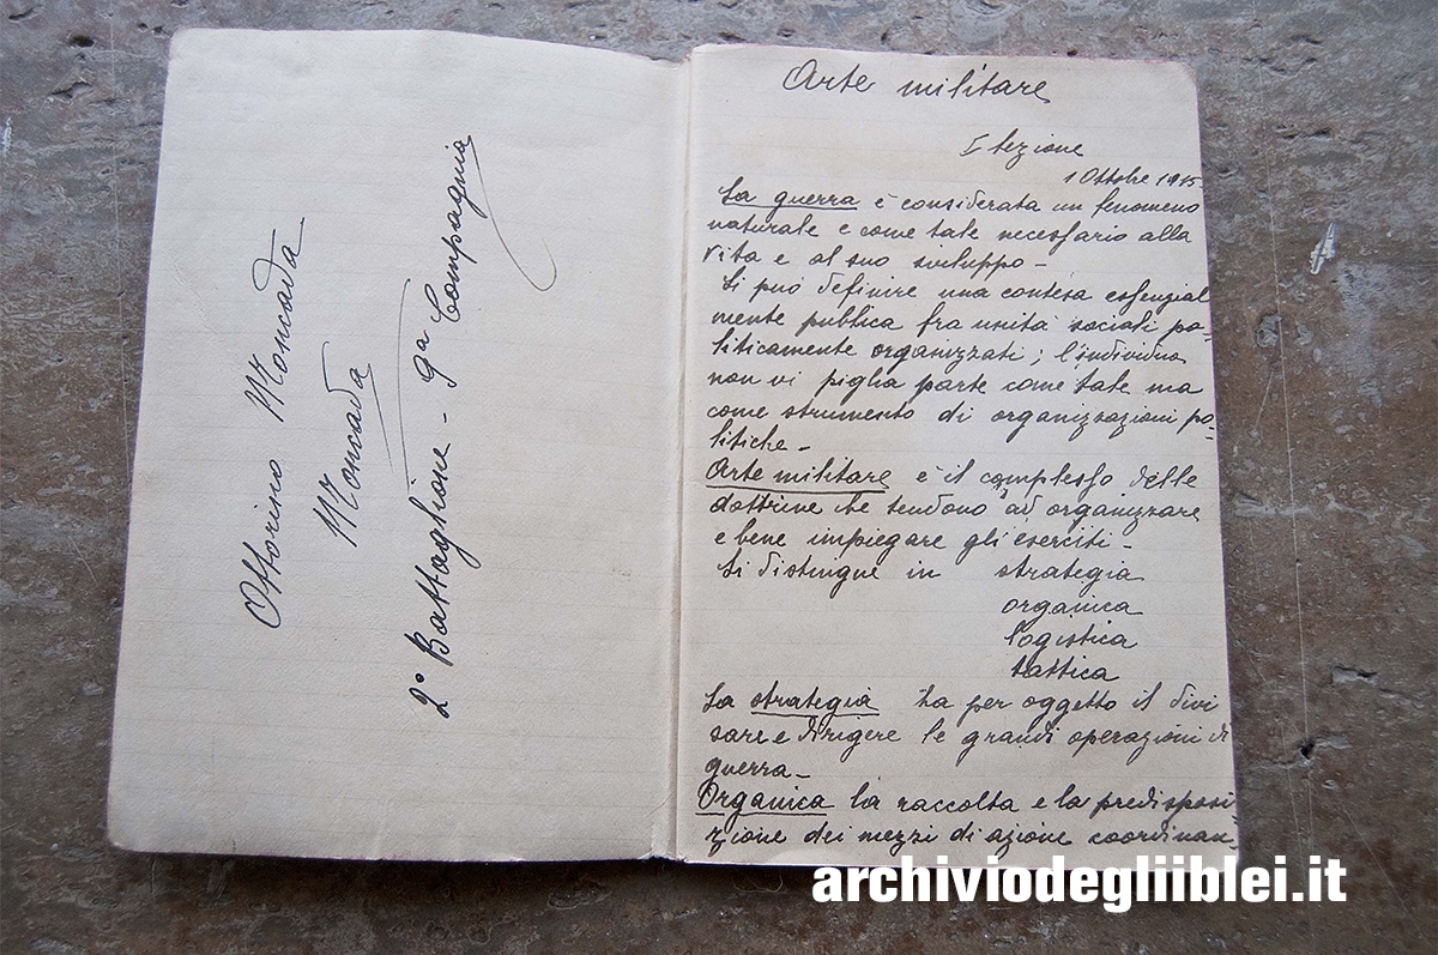 Ottorino Moncada
Moncada
2º Battaglione - 9ª Compagnia
Arte militare
I lezione
1 Ottobre 1915
La guerra è considerata un fenomeno
naturale e come tale necessario alla
vita e al suo sviluppo -
Si può definire una contesa essenzial
mente pubblica fra unità sociali po=
liticamente organizzati; l'individuo
non vi piglia parte come tale ma
come strumento di organizzazioni po=
litiche -
Arte militare è il complesso delle
dottrine che tendono ad organizzare
e bene impiegare gli eserciti -
Si distingue in strategia
organica
logistica
tattica
La strategia ha per oggetto il divi
sare e dirigere le grandi operazioni di
guerra -
Organica la raccolta e la predisposi=
zione dei mezzi di azione coordinan=
archiviodegliiblei.it